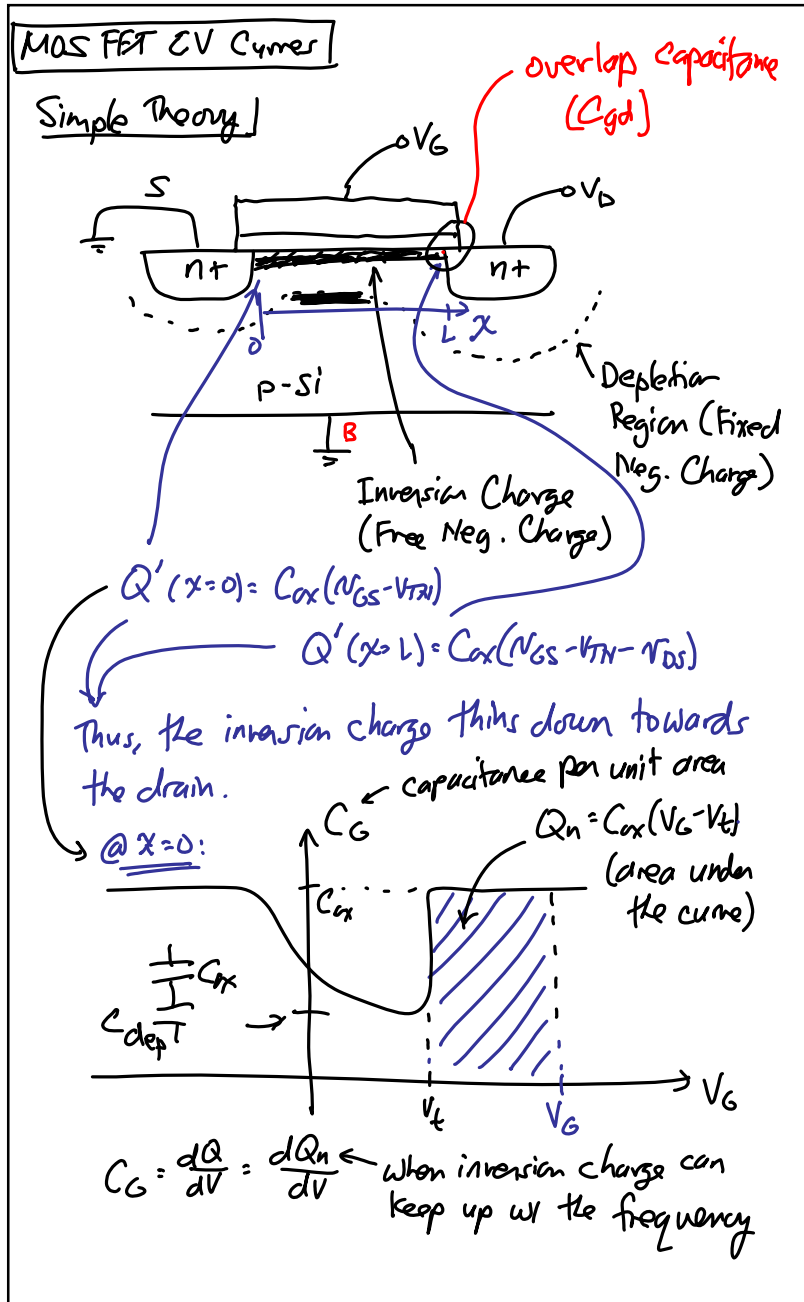 MOSFET CV Curves
Simple Theory
overlap capacitance
(Cgd)
VG
S
VD
n+
n+
0
L
x
p-Si
B
Depletion
Region (Fixed
Neg. Charge)
Inversion Charge
(Free Neg. Charge)
Q'(x=0) = Cox(VGS-VTN)
Q'(x=L) = Cox(VGS-VTN-VDS)
Thus, the inversion charge thins down towards
the drain.
@ x=0:
CG
capacitance per unit area
Qn = Cox(VG-Vt)
(area under
the curve)
Cox
Cox
Cdep
Vt
VG
VG
CG = dQ/dV = dQn/dV
when inversion charge can
keep up w/ the frequency